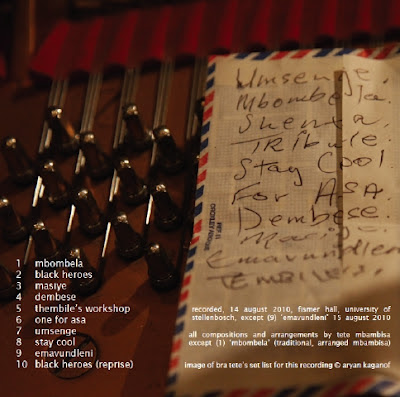 Umsenge.
Mbombela.
TRIBUTE.
Stay Cool
For ASA.
Dembese.
Emavundleni
1 mbombela
2 black heroes
3 masiye
4 dembese
5 thembile's workshop
6 one for asa
7 umsenge
8 stay cool
9 emavundleni
10 black heroes (reprise)
recorded, 14 august 2010, fismer hall, university of
stellenbosch, except (9) 'emavundleni' 15 august 2010
all compositions and arrangements by tete mbambisa
except (1) 'mbombela' (traditional, arranged mbambisa)
image of bra tete's set list for this recording © aryan kaganof